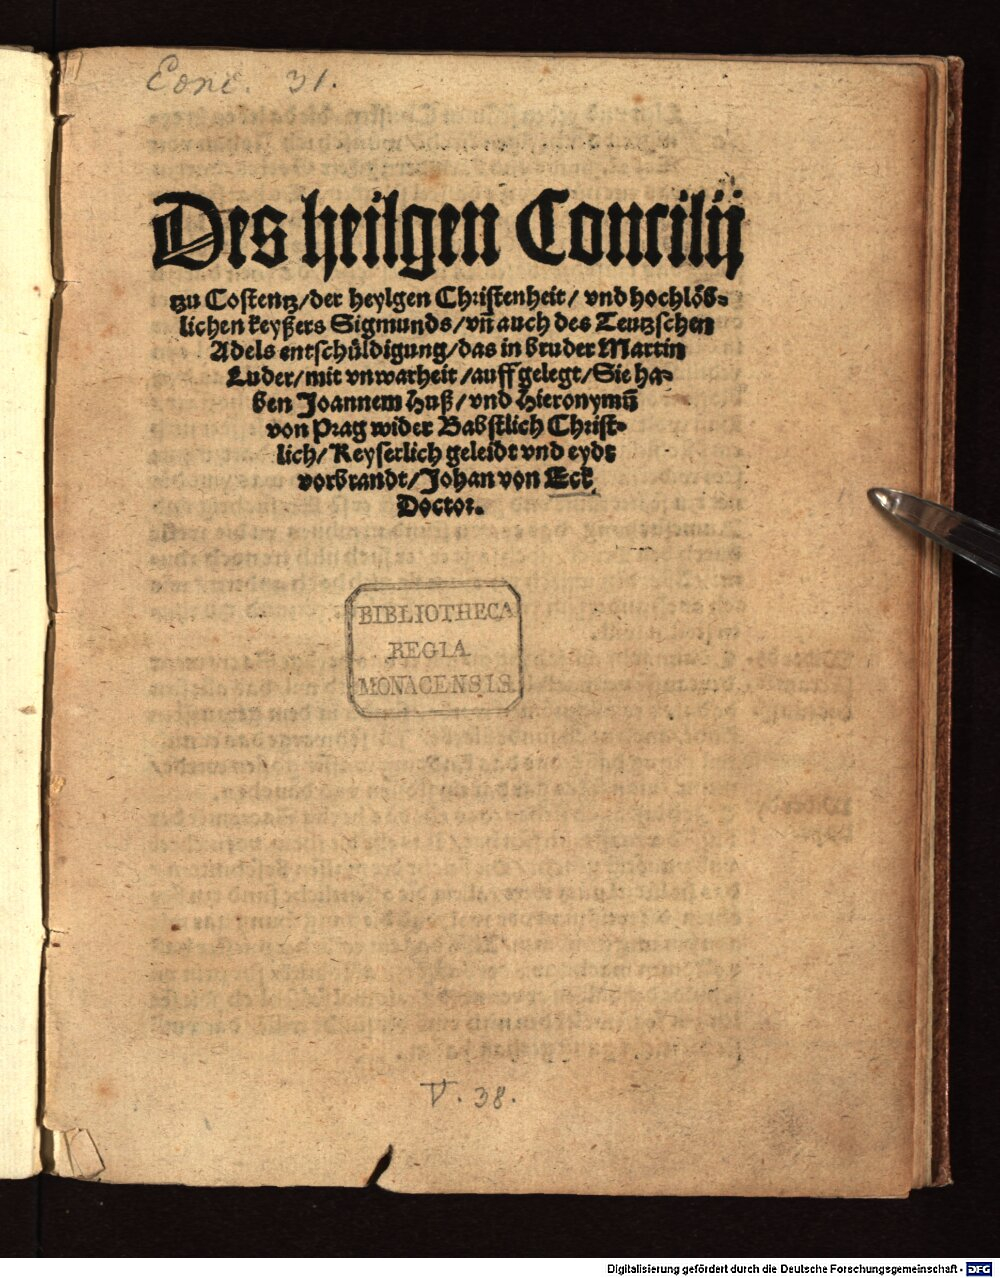 Conc. 31.
Des heilgen Concilij
tzu Costentz/der heylgen Christenheit/ vnd hochlöb-
lichen keyßers Sigmunds/vñ auch des Teutzschen
Adels entschüldigung/das in bruder Martin
Luder/mit vnwarheit/auff gelegt/Sie ha-
ben Joannem Huß/vnd Hieronymũ
von Prag wider Babstlich Christ-
lich/Keyserlich geleidt vnd eydt
vorbrandt/Johan von Eck
Doctor.
BIBLIOTHECA
REGIA
MONACENSIS
V. 38.
Digitalisierung gefördert durch die Deutsche Forschungsgemeinschaft - DFG